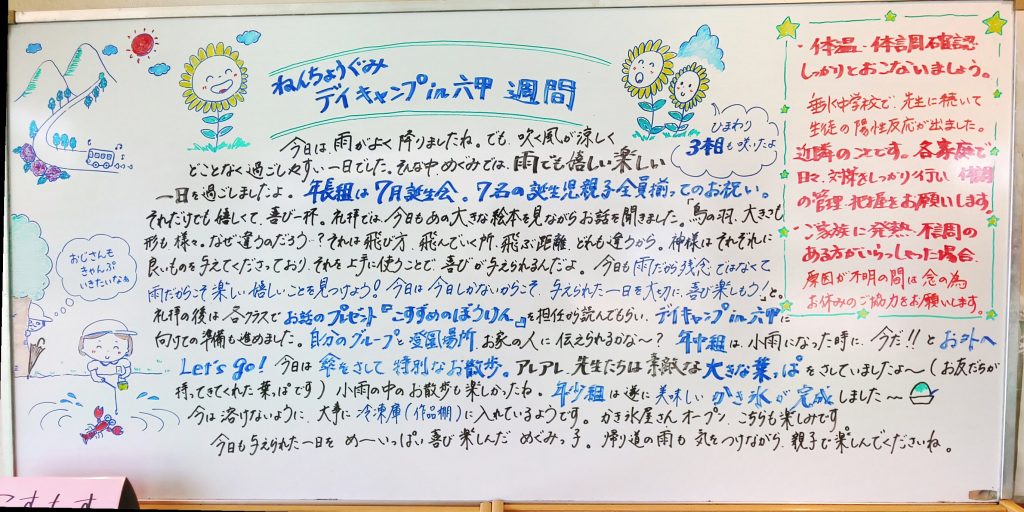 ねんちょうぐみ
デイキャンプin六甲 週間
ひまわり
3本目も咲いたよ
おじさんも
きゃんぷ
いきたいなぁ
今日は、雨がよく降りましたね。でも、吹く風が涼しく
どことなく過ごしやすい一日でした。そんな中めぐみでは、雨でも嬉しい楽しい
一日を過ごしましたよ。年長組は7月誕生会。7名の誕生児親子全員揃ってのお祝い。
それだけでも嬉しくて、喜び一杯。礼拝では、今日もあの大きな絵本を見ながらお話を聞きました。「鳥の羽、大きさも
形も様々。なぜ違うのだろう…?それは飛び方、飛んでいく所、飛ぶ距離、どれも違うから。神様はそれぞれに
良いものを与えてくださっており、それを上手に使うことで、喜びが与えられるんだよ。今日も雨だから残念ではなくて
雨だからこそ楽しい嬉しいことを見つけよう!今日は今日しかないからこそ、与えられた一日を大切に、喜び楽しもう!」と。
礼拝の後は、各クラスでお話のプレゼント『こすずめのぼうけん』を担任から読んでもらい、デイキャンプin六甲に
向けての準備も進めました。自分のグループと愛園場所、お家の人に伝えられるかな〜? 年中組は、小雨になった時に、今だ!!とお外へ
Let's Go! 今日は傘をさして特別なお散歩。アレアレ、先生たちは素敵な大きな葉っぱをさしていましたよ〜(お友だちが
持ってきてくれた葉っぱです)小雨の中のお散歩も楽しかったね。年少組は遂に美味しいかき氷が完成しました〜
今は溶けないように、大事に冷凍庫(作品棚)に入れているようです。かき氷屋さんオープン、こちらも楽しみです。
今日も与えられた一日を め〜いっぱい喜び楽しんだ めぐみっ子。帰り道の雨も気をつけながら、親子で楽しんでくださいね。
・体温・体調確認
しっかりとおこないましょう。
垂水中学校で、先生に続いて
生徒の陽性反応が出ました。
近隣のことです。各家庭で
日々、対策をしっかり行い、体調
の管理・把握をお願いします。
・ご家族に発熱・不調の
ある方がいらっしゃった場合、
原因が不明の間は念の為
お休みのご協力をお願いします。